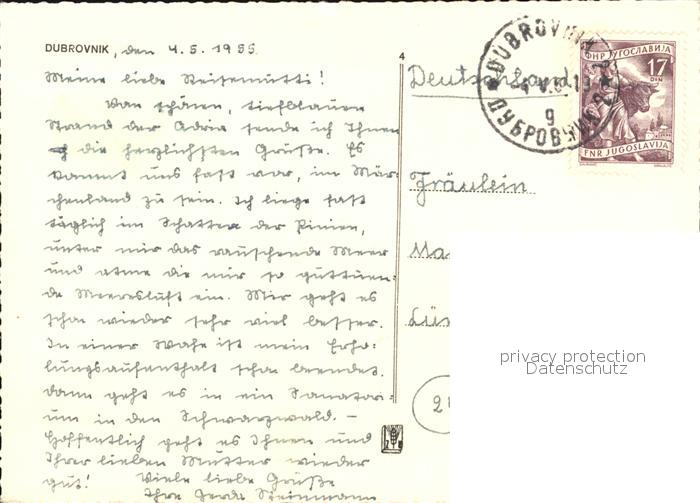 DUBROVNIK, den 4.5.1955.
4
Meine liebe Reisemutti!
Vom schönen, tiefblauen
Strand der Adria sende ich Ihnen
die herzlichsten Grüße. Es
kommt uns fast vor, im Mär-
chenland zu sein. Ich liege fast
täglich im Schatten der Pinien,
unter mir das rauschende Meer
und atme die mir so guttuen-
de Meeresluft ein. Mir geht es
schon wieder sehr viel besser.
In einer Woche ist mein Erho-
lungsaufenthalt schon beendet.
Dann geht es in ein Sanatori-
um in den Schwarzwald. –
Hoffentlich geht es Ihnen und
Ihrer lieben Mutter wieder
gut! Viele liebe Grüße
Ihre Gerda Steinmann
Deutschland
Fräulein
Ma
Lü
2
DUBROVNIK
ДУБРОВНИК
9
ФНР ЈУГОСЛАВИЈА
17
DIN
FNR JUGOSLAVIJA
privacy protection
Datenschutz